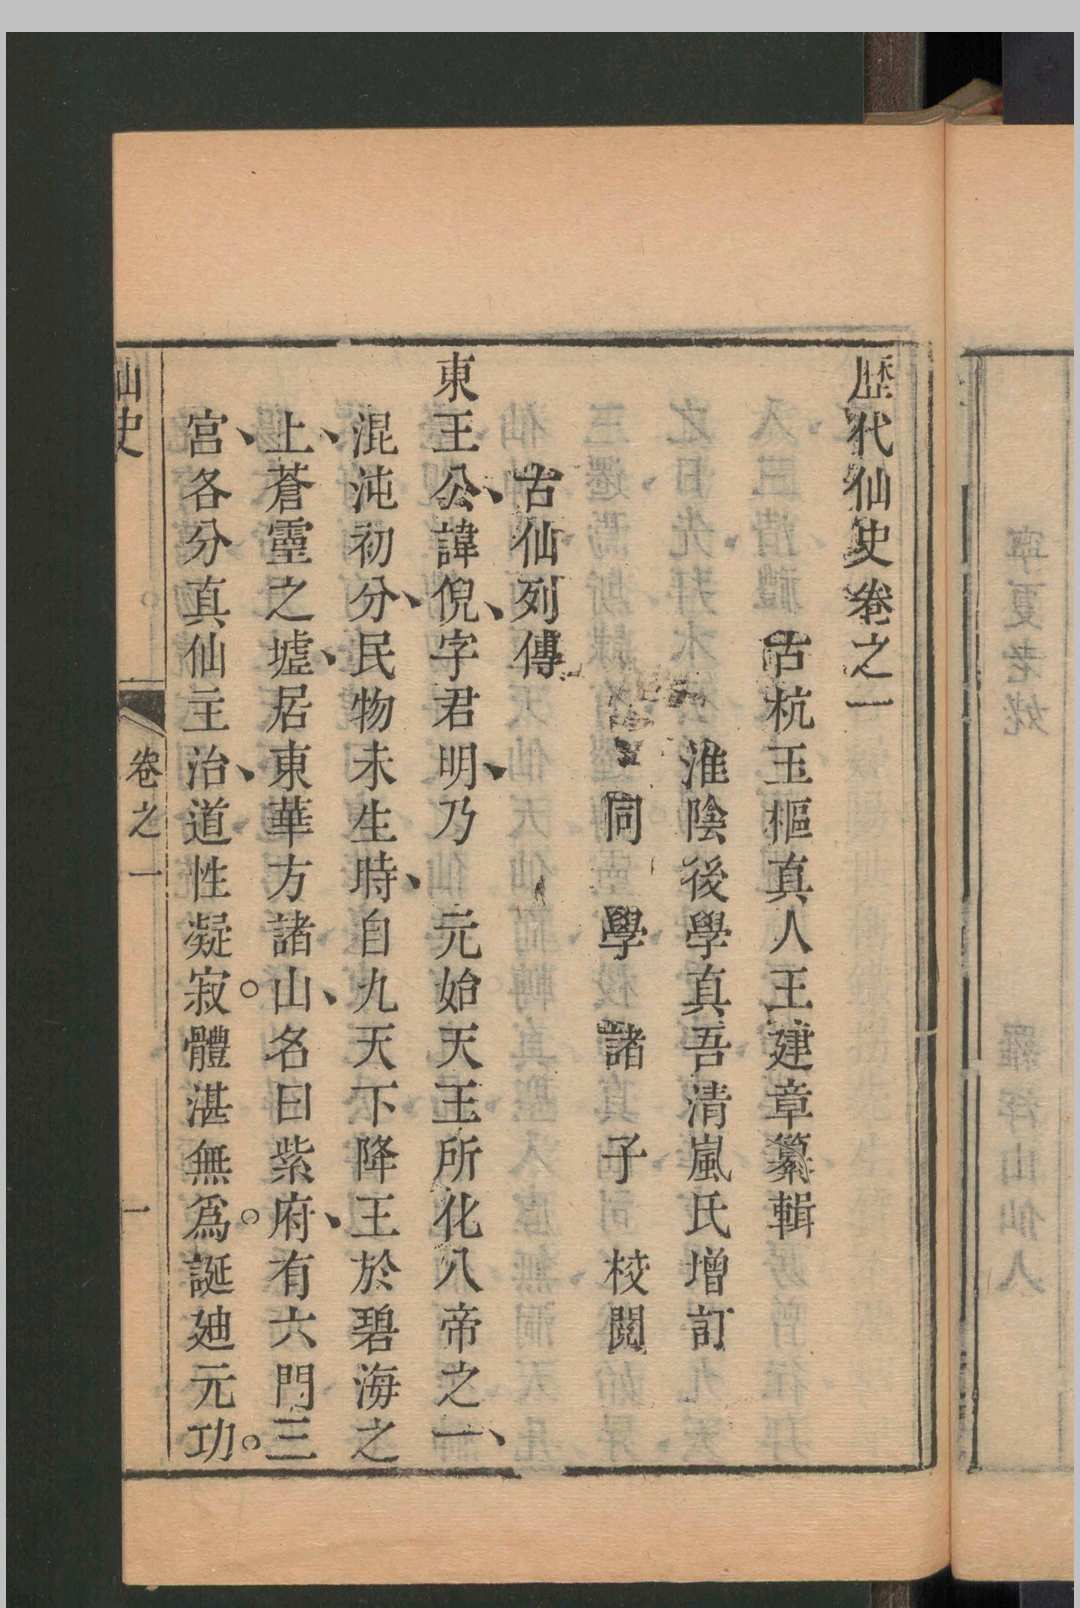 歷代仙史卷之一
古杭玉樞真人王建章纂輯
淮陰後學真吾清嵐氏增訂
同學諸子校閱
古仙列傳
東王公諱倪字君明乃 元始天王所化八帝之一
混沌初分民物未生時自九天下降王於碧海之
上蒼靈之墟居東華方諸山名曰紫府有六門三
宮各分真仙主治道性凝寂體湛無爲誕廸元功
仙史
卷之一
一